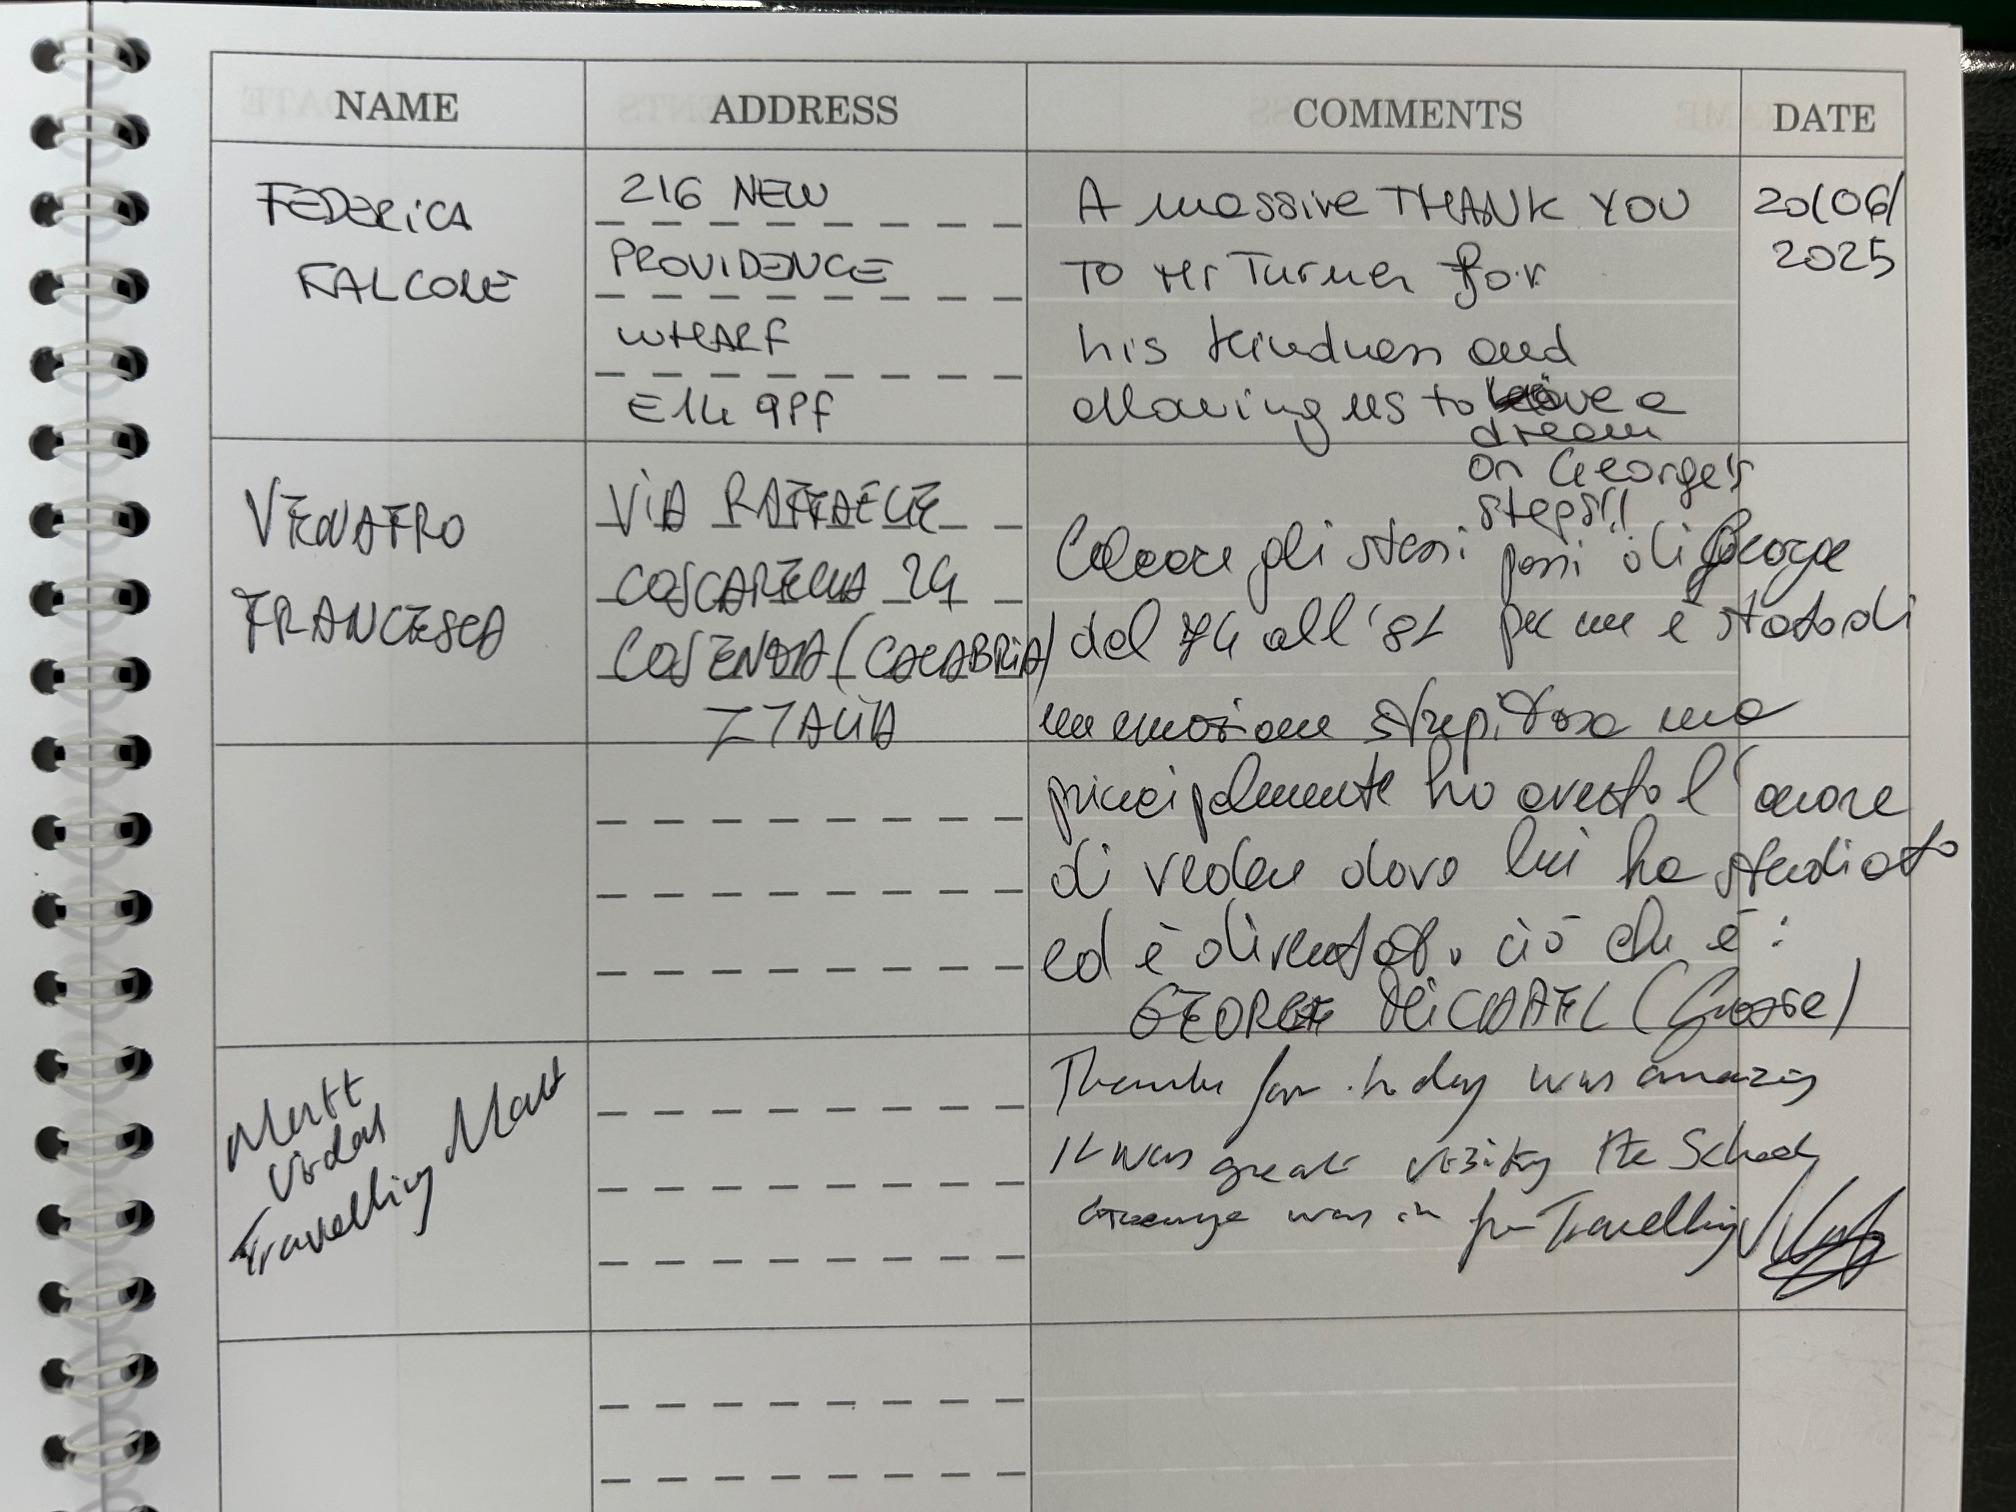 NAME ADDRESS COMMENTS DATE
FEDERICA
FALCONE
216 NEW
PROVIDENCE
WHARF
E14 9PF
A massive THANK YOU
TO Mr Turner for
his kindness and
allowing us to have a
dream
on George's
steps!!
20/06/
2025
VENAFRO
FRANCESCA
VIA RAFFAELE
COSCARELLA 24
COSENZA (CALABRIA)
ITALIA
Calcare gli stessi passi di George
dal 74 all'81 per me è stato di
un emozione strepitosa ma
principalmente ho avuto l'onore
di vedere dove lui ha studiato
ed è diventato ciò che è:
GEORGE MICHAEL (Grazie)
Matt
Travelling Matt
Thanks for today was amazing
It was great visiting the School
George was in from Travelling Matt